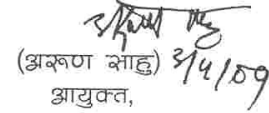 (अरूण साहु) 3/4/09
आयुक्त,